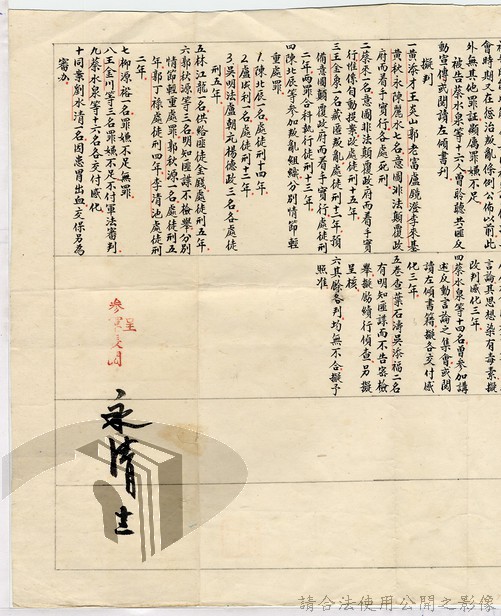 會時期又在懲治叛亂條例公佈以前此
外無其他罪証顯屬罪嫌不足
被告蔡水泉等十六人曾聆聽共匪反
動宣傳或閱讀左傾書刊
擬判
一黃添才王炎山鄭老富盧鏡澄李來基
黃秋永陳麗水七名意圖非法顛覆政
府而着手實行各處死刑
二蔡來一名意圖非法顛覆政府而着手實
行惟係自動投案改處徒刑十五年
三王金泉一名藏匿叛亂處徒刑十二年預
備意圖顛覆政府而着手實行處徒刑
二年兩罪合科執行徒刑十三年
四陳北辰等參加叛亂組織分別情節輕
重處罪
1.陳北辰一名處徒刑十四年
2.盧成利一名處徒刑十二年
3.吳明法盧朝元楊德政三名各處徒
刑五年
五林江龍一名供給匪徒金錢處徒刑五年
六郭秋源等三名明知匪諜不檢舉分別
情節輕重處罪郭秋源一名處徒刑五
年郭丁祿處徒刑四年李清池處徒刑
二年
七柳源裕一名罪嫌不足無罪
八王金川等三名罪嫌不足不付軍法審判
九蔡水泉等十六名各交付感化
十同案劉水清一名因患胃出血交保另為
審办
言論其思想染有毒素擬
改判感化三年
四蔡水泉等十四名曾參加講
述反動言論之集會或閱
讀左傾書籍擬各交付感
化三年
五卷查葉石濤吳添福二名
有明知匪諜而不告密檢
舉擬飭續行偵查另擬
呈核
六其餘各判均無不合擬予
照准
呈
請合法使用公開之影像